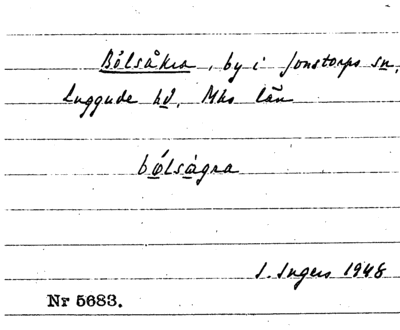 Bölsåkra, by i Jonstorps sn,
Luggude hd, Mhs län
bø̀lsågra
I. Ingers 1948
Nr 5683.